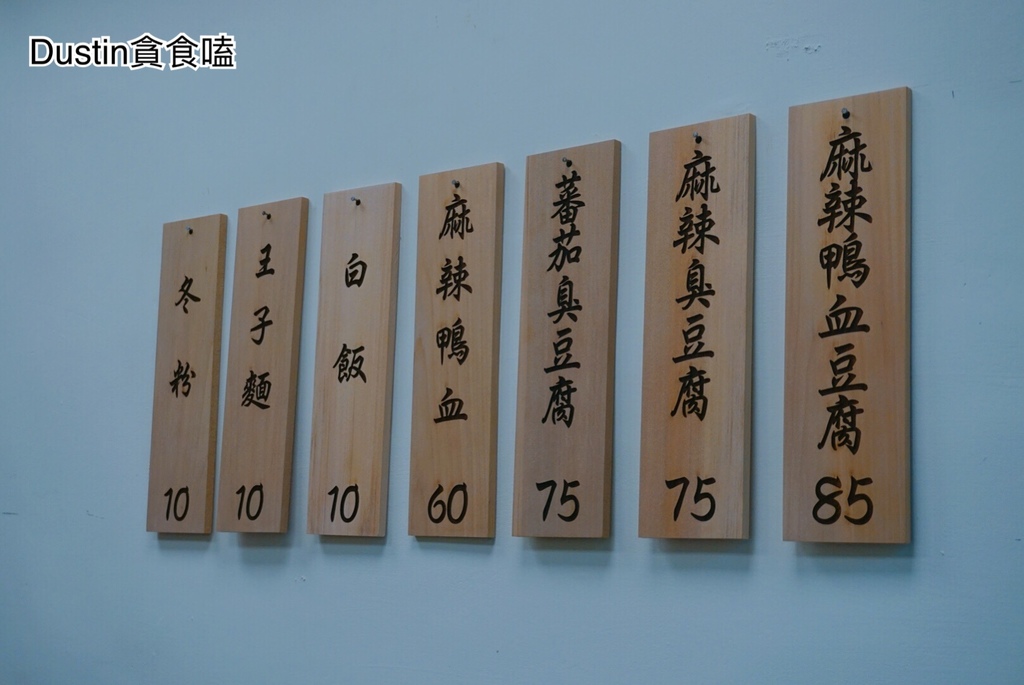 Dustin貪食嗑
麻辣鴨血豆腐
85
麻辣臭豆腐
75
蕃茄臭豆腐
75
麻辣鴨血
60
白飯
10
王子麵
10
冬粉
10